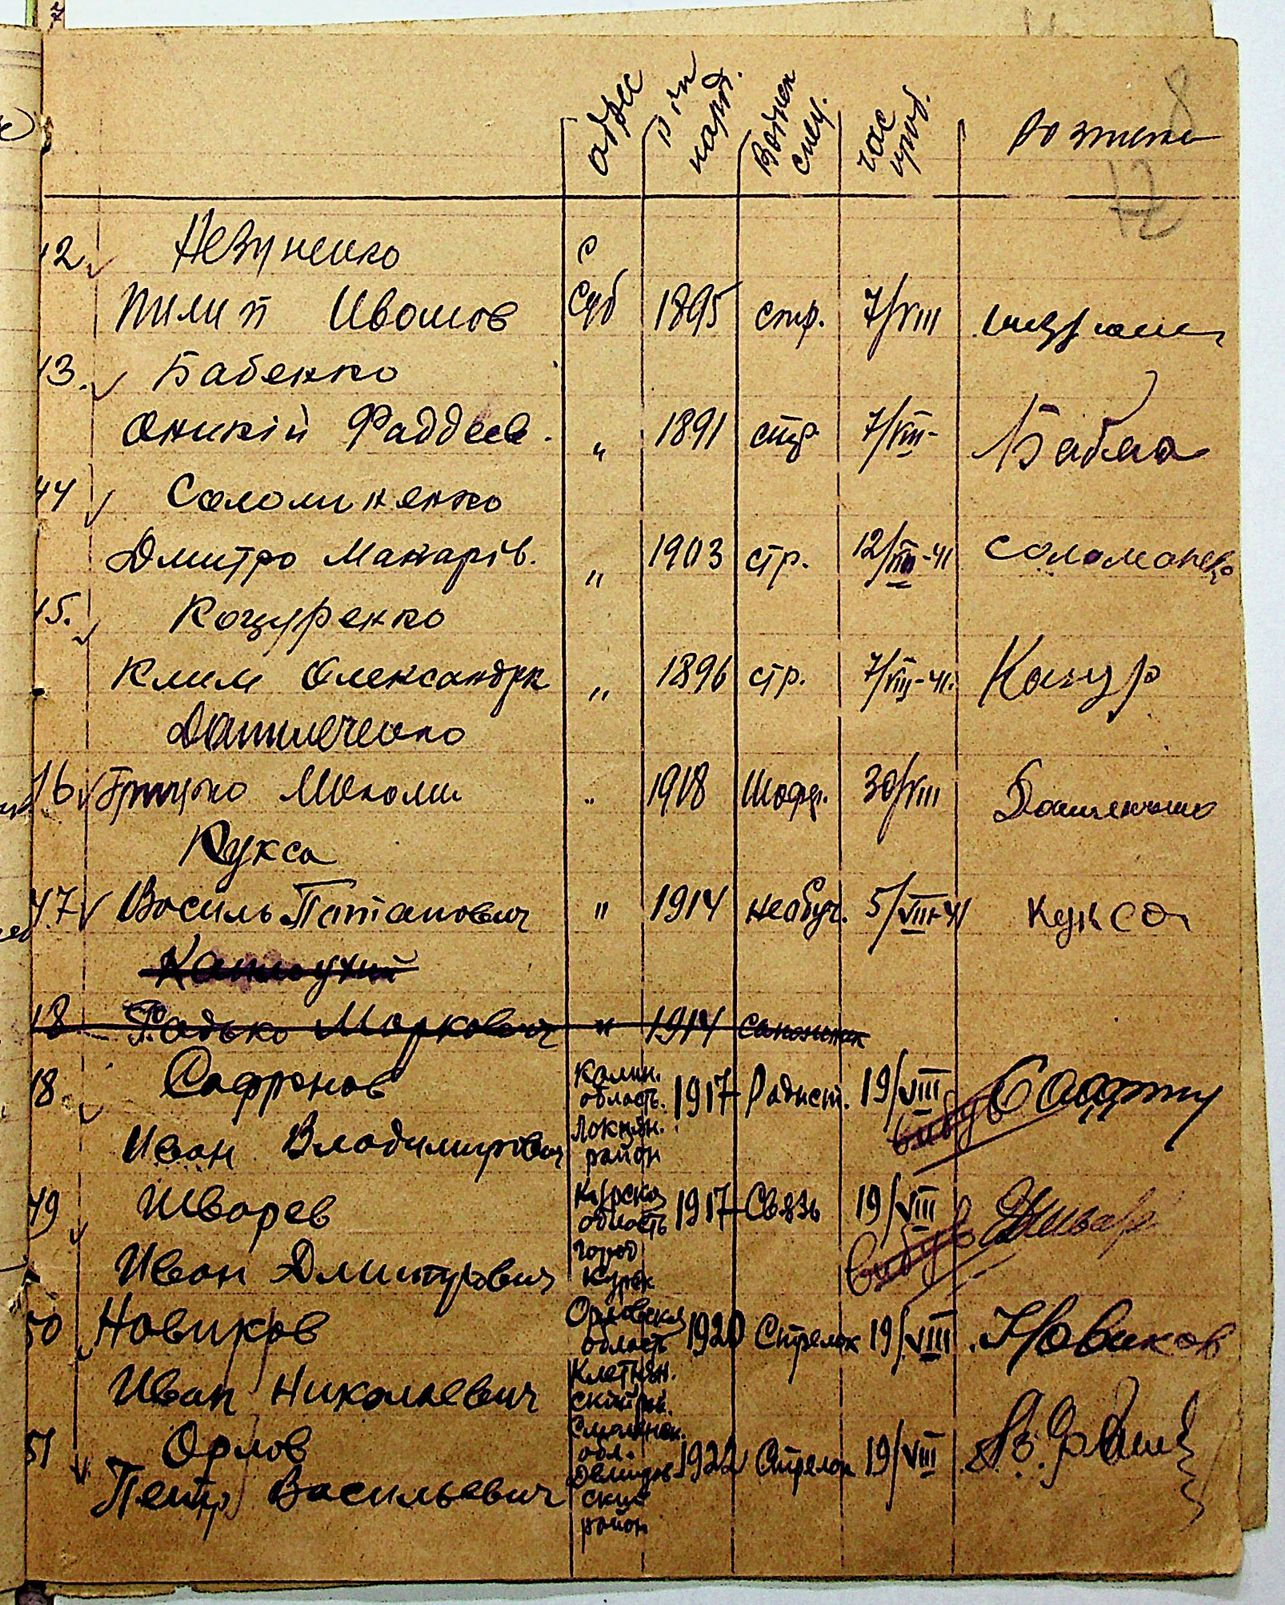 адрес рiк нард. Воднек спец. час проб. Розписка
8
72
42. Незуненко с
Пилип Ивонов Суб 1895 стр. 7/VIII
43. Бабенко
Оникій Фаддеев. " 1891 стр. 7/VIII- Бабен
44 Соломиненко
Дмитро Макарів. " 1903 стр. 12/VIII-41 Соломоненко
45. Коцуренко
Клим Олександр " 1896 стр. 7/VIII-41. Коцур
Данилеченко
46. Грицько Миколи " 1918 Шофер. 30/VIII
Кукса
47 Василь Патапович " 1914 необуч. 5/VIII-41 Кукса
18 Радько Маркович " 1914
48. Сафронов Калин. область. 1917 Радист. 19/VIII
Иван Владимирович Локнян. район вибув
49 Шварев Курска область 1917 Связь 19/VIII Швар
Иван Дмитрович город Курск вибув
50 Новиков Орловская область 1920 Стрелок 19/VIII. Новиков
Иван Николаевич Клетнян. ский рай.
51 Орлов Смоленск. обл. 1922 Стрелок 19/VIII
Петр Васильевич Демидов ский район